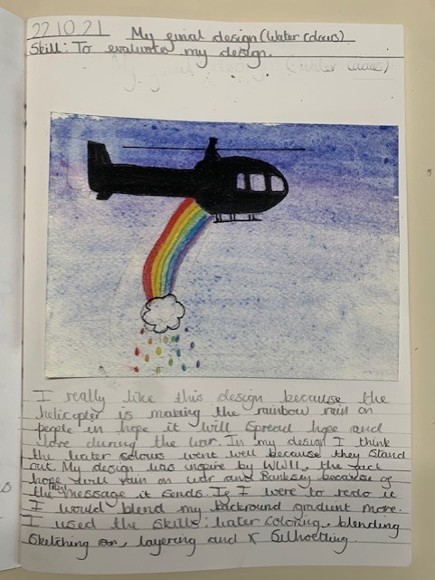 22.10.21 My final design (Water Colours)
Skill: To evaluate my design.
I really like this design because the
helicopter is making the rainbow rain on
people in hope it will spread hope and
love during the war. In my design I think
the water colours went well because they stand
out. My design was inspire by WWII, the fact
hope will rain on war and Banksy because of
the message it sends. If I were to redo it
I would blend my backround gradient more.
I used the skills: water coloring, blending
sketching, layering and